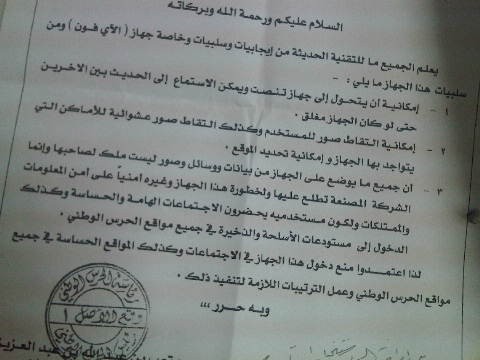 السلام عليكم ورحمة الله وبركاته
يعلم الجميع ما للتقنية الحديثة من إيجابيات وسلبيات وخاصة جهاز ( الآي فون ) ومن
سلبيات هذا الجهاز ما يلي : -
١ - إمكانية ان يتحول إلى جهاز تنصت ويمكن الاستماع إلى الحديث بين الاخرين
حتى لو كان الجهاز مغلق .
٢ - إمكانية التقاط صور للمستخدم وكذلك التقاط صور عشوائية للأماكن التي
يتواجد بها الجهاز و إمكانية تحديد الموقع .
٣ - أن جميع ما يوضع على الجهاز من بيانات ووسائل وصور ليست ملك لصاحبها وإنما
الشركة المصنعة تطلع عليها ولخطورة هذا الجهاز وغيره أمنياً على امن المعلومات
والممتلكات ولكون مستخدميه يحضرون الاجتماعات الهامة والحساسة وكذلك
الدخول إلى مستودعات الأسلحة والذخيرة في جميع مواقع الحرس الوطني .
لذا اعتمدوا منع دخول هذا الجهاز في الاجتماعات وكذلك المواقع الحساسة في جميع
مواقع الحرس الوطني وعمل الترتيبات اللازمة لتنفيذ ذلك .
وبه حرر ،،،
رئاسة الحرس الوطني
الأصل
عبد العزيز